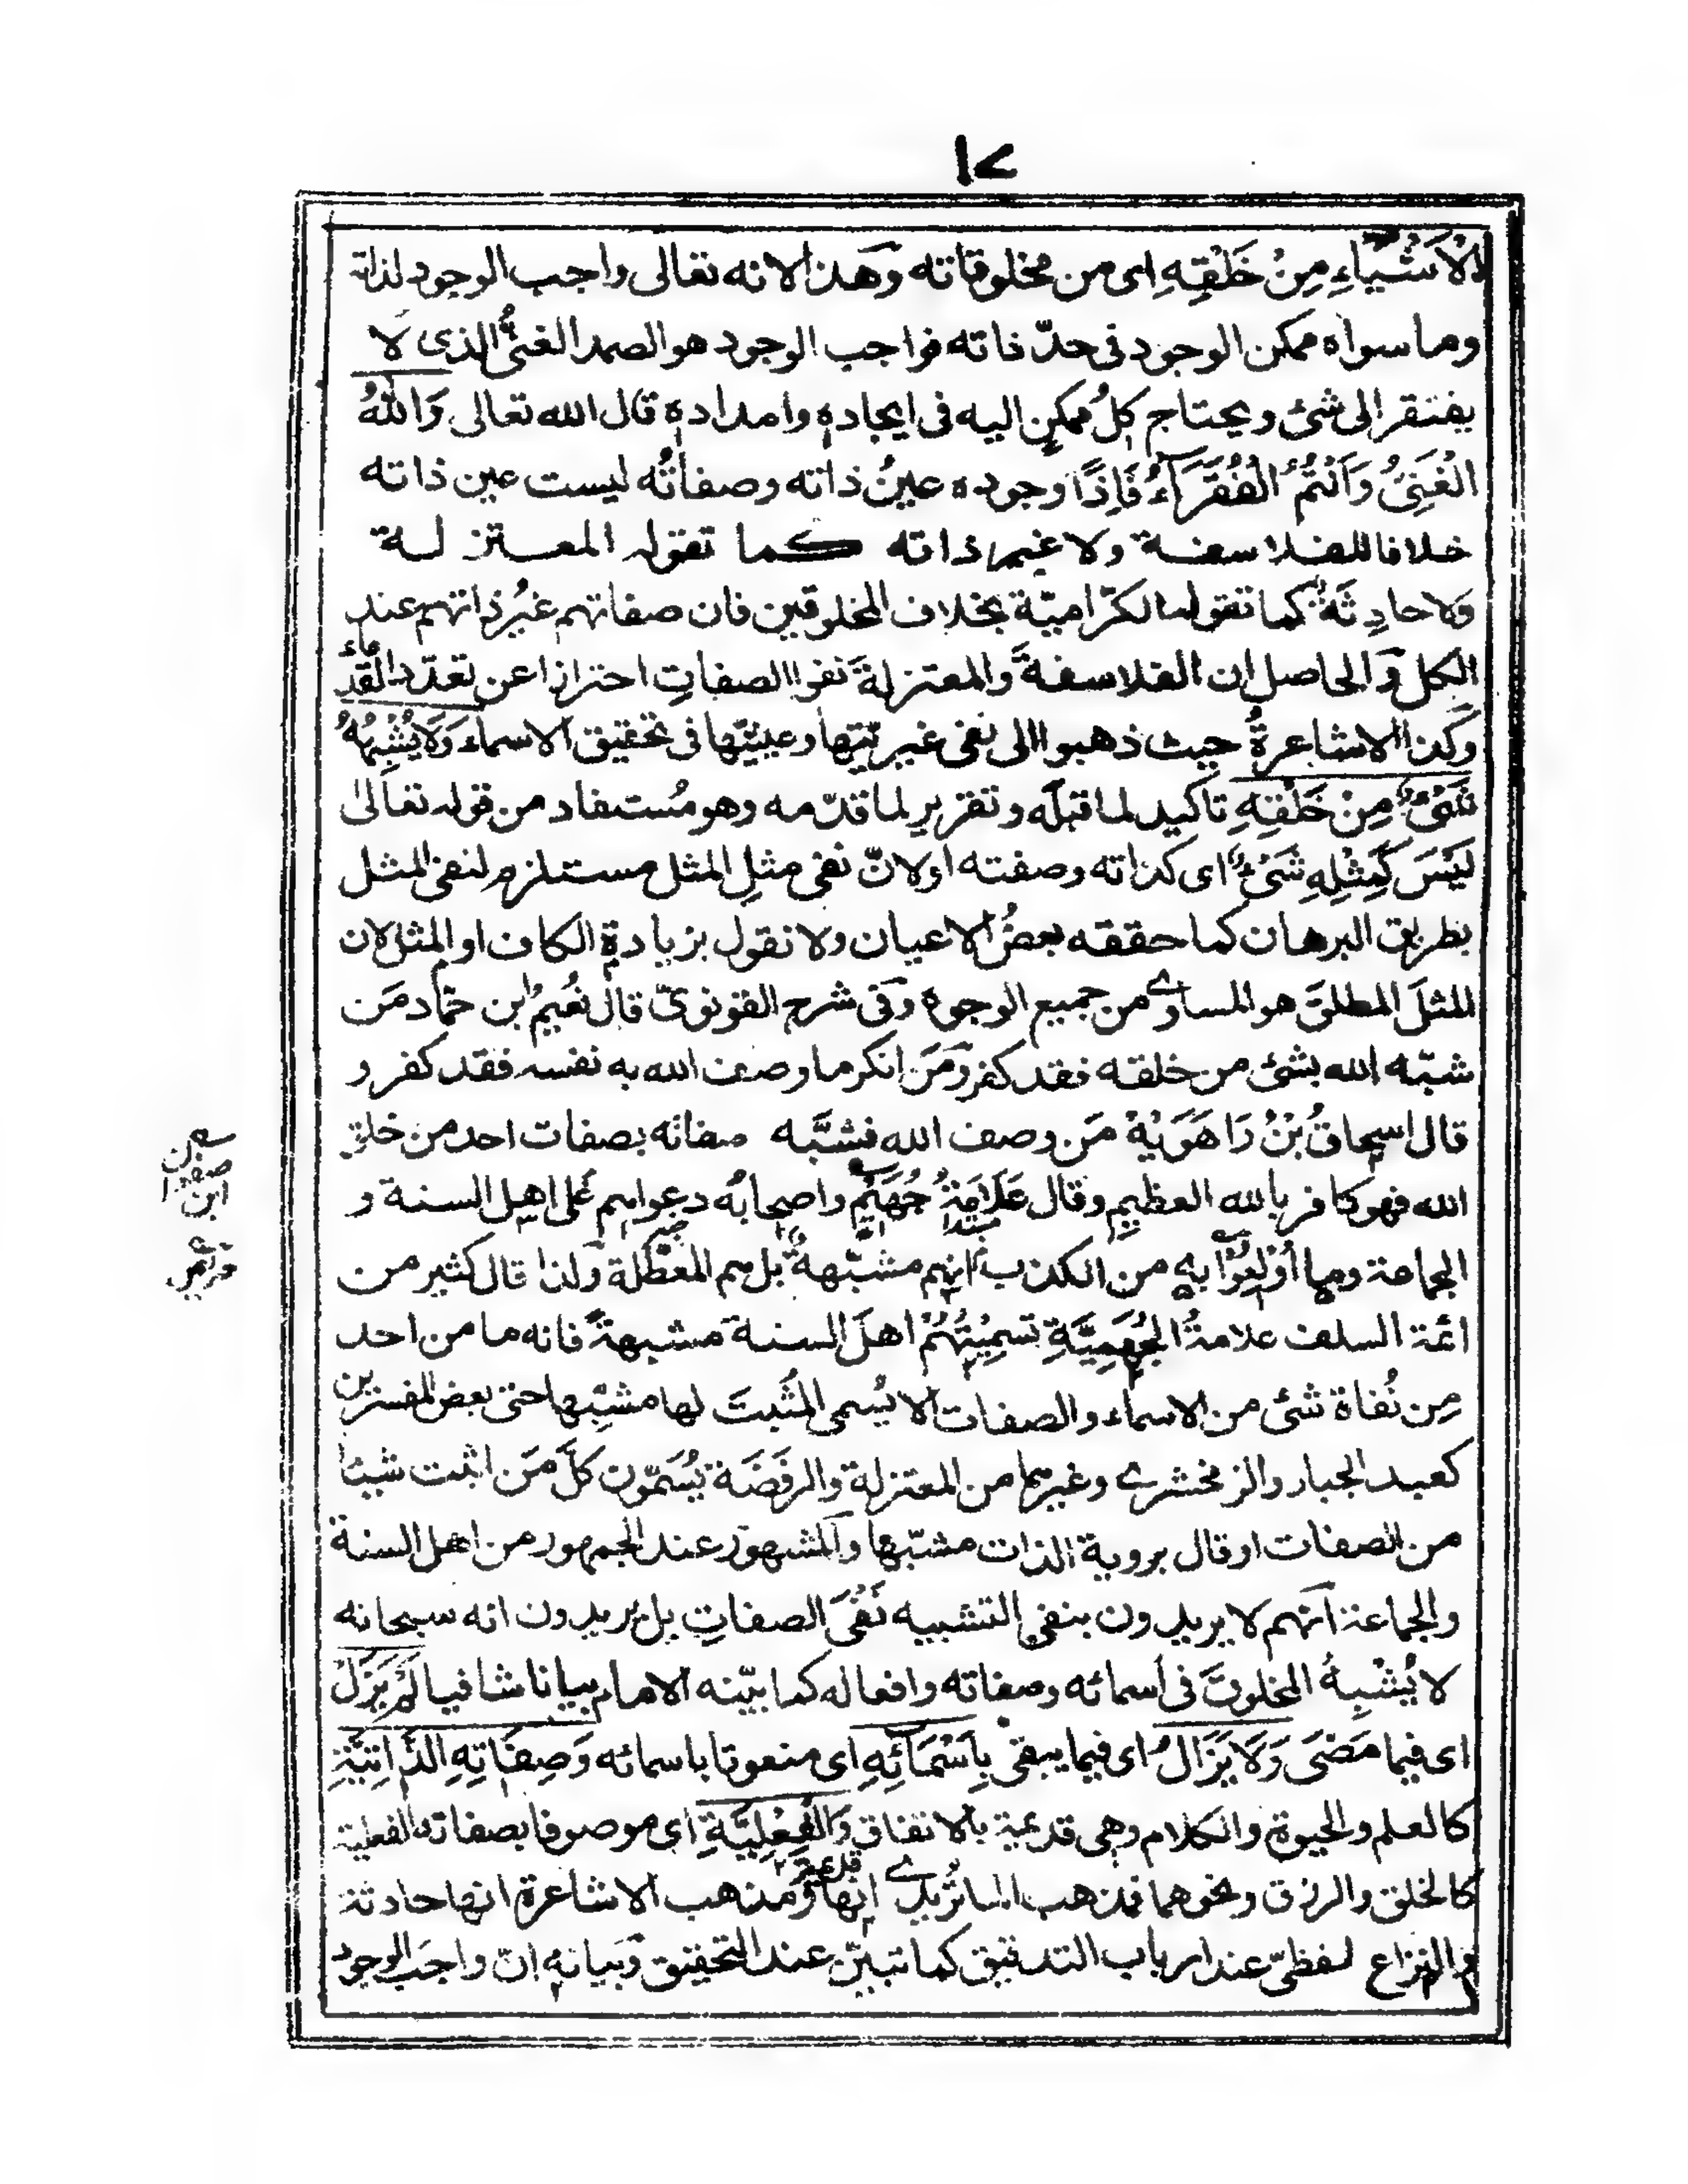 ١٧
الْاَشْيَاءِ مِنْ خَلْقِهِ اى من مخلوقاته وهذا لانه تعالى واجب الوجود لذاته
وما سواه ممكن الوجود فى حدّ ذاته فواجب الوجود هو الصمد الغنىُّ الذى لا
يفتقر الى شئ ويحتاج كلُ ممكنٍ اليه فى ايجاده وامداده قال الله تعالى وَاللّٰهُ
الْغَنِىُّ وَاَنْتُمُ الْفُقَرَآءُ فَاِذًا وجوده عينُ ذاته وصفاتُه ليست عين ذاته
خلافا للفلاسفة ولا غير ذاته كما تقوله المعتزلة
وَلا حادِثَةً كما تقوله الكرّامية بخلاف المخلوقين فان صفاتهم غيرُ ذاتهم عند
الكل وَالحاصل ان الفلاسفةَ والمعتزلةَ نفوا الصفاتِ احترازا عن تعدّد القدماء
وكذا الاشاعرةُ حيث ذهبوا الى نفى غيريّتها وعينيّتها فى تحقيق الاسماء وَلَا يُشْبِهُهُ
شَىْءٌ مِنْ خَلْقِهِ تاكيد لما قبله وتقرير لما قدّمه وهو مُستفاد من قوله تعالىٰ
لَيْسَ كَمِثْلِهٖ شَىْءٌ اى كذاته وصفته اولانّ نفى مثلِ المثل مستلزم لنفى المثل
بطريق البرهان كما حققه بعضُ الاعيان ولا نقول بزيادة الكاف او المثل لان
المثلَ المطلقَ هو المساوے من جميع الوجوه وفى شرح القونوىّ قال نُعَيمُ ابن حمّاد مَن
شبّه الله بشئ من خلقه فقد كفر ومَن انكر ما وصف الله به نفسه فقد كفر و
قال اسحاقُ بْنُ رَاهَوَيْهْ مَن وصف الله فشبَّه صفاته بصفات احد من خلق
الله فهو كافر بالله العظيم وقال عَلَامَةُ جُهَيْمٍ واصحابُه دعواهم على اهل السنة و
الجماعة وما اُوْلِعُوْا به من الكذب انهم مشبّهةٌ بل هم المعطّلة ولذا قال كثير من
ائمة السلف علامةُ الجُهَمِيَّةِ تسمِيَتُهُمْ اهلَ السنة مشبهةً فانه ما من احد
مِن نُفاة شئ من الاسماء والصفات الا يُسمى المُثبتَ لها مشبّها حتى بعض المفسرين
كعبد الجبار والزمخشرے وغيرهما من المعتزلة والرفَضَة يُسَمّون كلَّ مَن اثبت شيئا
من الصفات او قال بروية الذات مشبّها والمشهور عند الجمهور من اهل السنة
والجماعة انهم لا يريدون بنفى التشبيه نَفْىَ الصفاتِ بل يريدون انه سبحانه
لا يُشْبِهُ المخلوقَ فى اسمائه وصفاته وافعاله كما بيّنه الامام بيانا شافيا لَمْ يَزَلْ
اى فيما مَضىَ وَلَا يَزَالُ اى فيما يبقى بِاَسْمَائِهٖ اى منعوتا باسمائه وَصِفَاتِهِ الذَّاتِيَّةِ
كالعلم والحيوة والكلام وهى قديمة بالاتفاق وَالْفِعْلِيَّةِ اى موصوفا بصفاته الفعلية
كالخلق والرزق ونحوهما فمذهب الماتُريدے انها قديمة ومذهب الاشاعرة انها حادثة
والنزاع لفظىّ عند ارباب التدقيق كما تبيّن عند التحقيق وبيانه انّ واجبَ الوجود
ابن